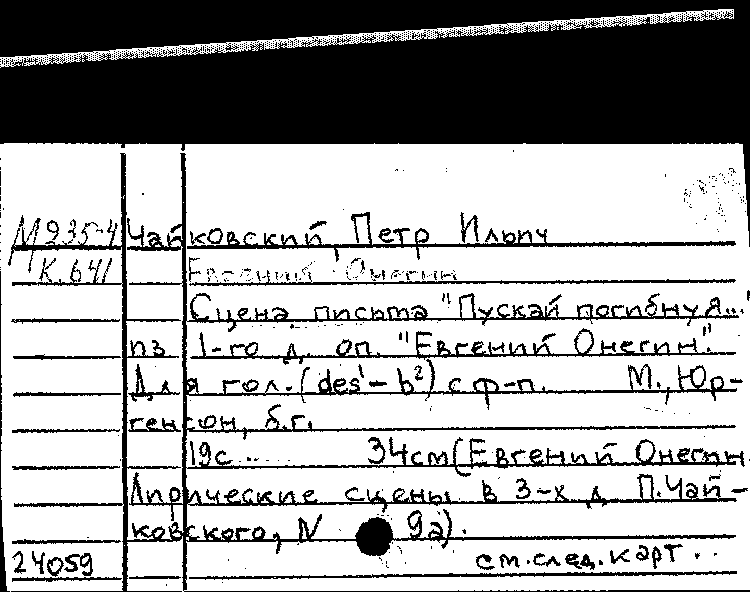 М 935-4 Чайковский, Петр Ильич
К.641 Евгений Онегин
Сцена письма "Пускай погибну я..."
из 1-го д. оп. "Евгений Онегин".
Для гол. (des¹ – b²) с ф-п. М., Юр-
генсон, б.г.
19с .. 34см (Евгений Онегин
Лирические сцены в 3-х д. П. Чай-
ковского, N 9а).
24059 см. след. карт..